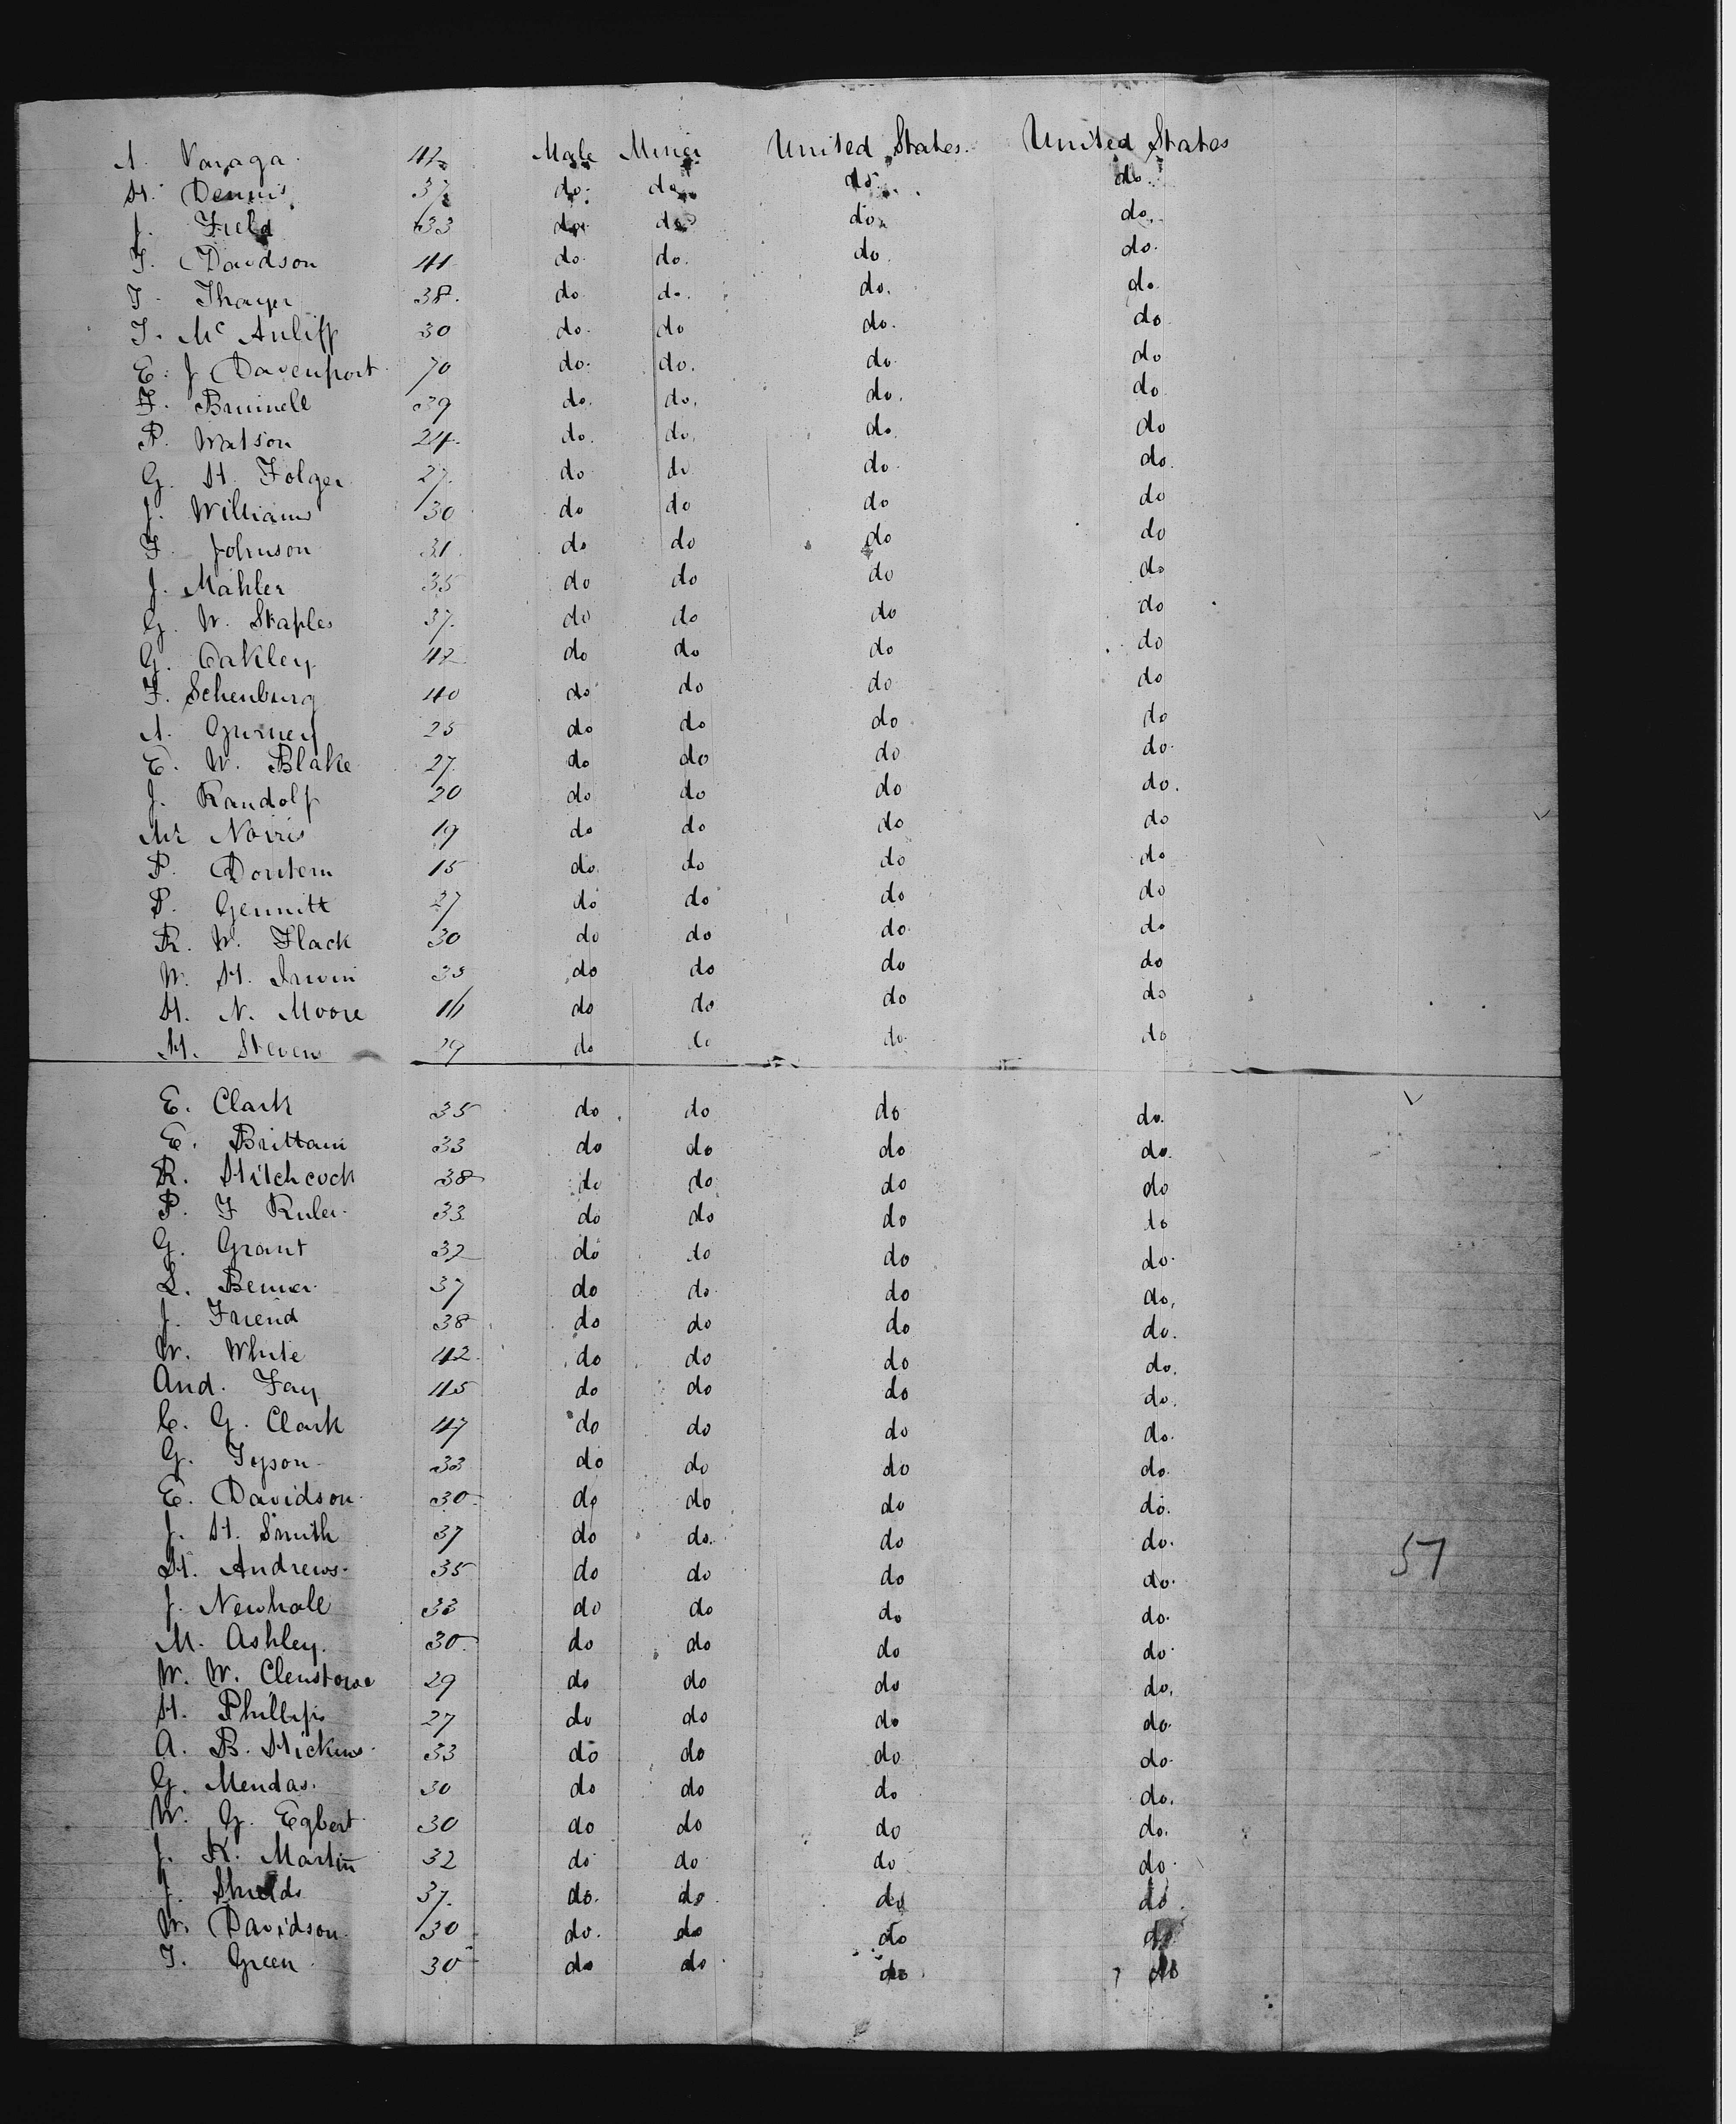 A. Varaga. 42 Male Miner United States. United States
H. Dennis. 37 do. do. do. do.
J. Field 33 do. do. do. do.
T. Davdson 41 do. do. do. do.
T. Thayer 38. do do. do. do.
T. Mc Auliff 30 do. do do. do
E. J Davenport 70 do. do. do. do
F. Bruinell 39 do. do. do. do.
P. Watson 24. do. do. do. do
G. H. Folger 27. do do do. do.
J. Williams 30 do do do do
F. Johnson 31 do do do do
J. Mahler 35 do do do do
G. W. Staples 37. do do do do
G. Oakley 42 do do do do
F. Schenburg 40 do do do do
A. Gurney 25 do do do do
E. W. Blake 27 do do do do.
J. Randolf 20 do do do do.
Mr Norris 19 do do do do
P. Dontern 15 do. do do do
P. Gennitt 27 do do do do
R. W. Flack 30 do do do. do
W. H. Irwin 35 do do do do
H. N. Moore 16 do do do do
H. Stevens 29 do do do. do
E. Clark 35 do do do do.
E. Brittain 33 do do do do.
R. Hitchcock 38 do do do do
P. F Ruler. 33 do do do do
G. Grant 32 do do do do.
L. Bemer. 37 do do. do do.
J. Friend 38 do do do do.
W. White 42. do do do do.
And. Fay 45 do do do do.
C. G. Clark 47 do do do do.
G. Tyson 33 do do do do.
E. Davidson. 30. do do do do.
J. H. Smith 37 do do. do do.
H. Andrews. 35 do do do do.
J. Newhall 33 do do do do.
M. Ashley. 30. do do do do.
W. W. 29 do do do do.
H. Phillips 27 do do do do.
A. B. Hickens. 33 do do do do.
G. Mendas. 30 do do do do.
W. G. Egbert 30 do do do do.
J. K. Martin 32 do do do do.
J. Shields 37. do. do. do do.
W. Davidson. 30 do. do do do
T. Green. 30 do do do do
57